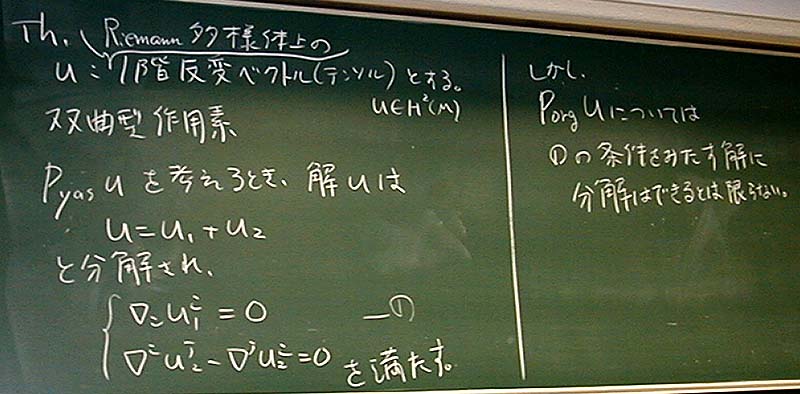 Th. Riemann 多様体上の
u : 1階反変ベクトル(テンソル)とする。
u∈H²(M)
双曲型作用素
Pyas u を考えるとき、解 u は
u = u₁ + u₂
と分解され、
∇ᵢu₁ⁱ = 0 —①
∇ⁱu₂ʲ - ∇ʲu₂ⁱ = 0 を満たす。
しかし、
Porg u については
①の条件をみたす解に
分解はできるとは限らない。